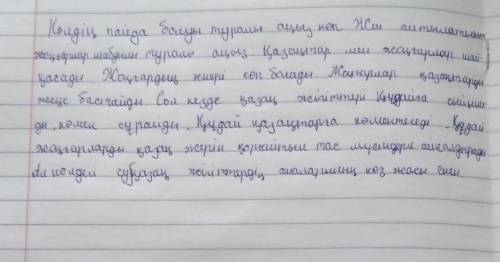 Көлдің пайда болуы туралы аңыз көп Жиі айтылатыны
жоңғарлар шабуылы туралы аңыз Қазақтар мен жоңғарлар шай-
қасады Жоңғардың әскері көп болады Жоңғарлар қазақтарды
жеңе бастайды Сол кезде қазақ жігіттері Құдайға сыйына-
ды, көмек сұрайды. Құдай қазақтарға көмектеседі. Құдай
жоңғарларды қазақ жерін қорғайтын тас мүсіндерге айналдырады
Ал көлдегі су қазақ жігіттердің аналарының көз жасы екен.